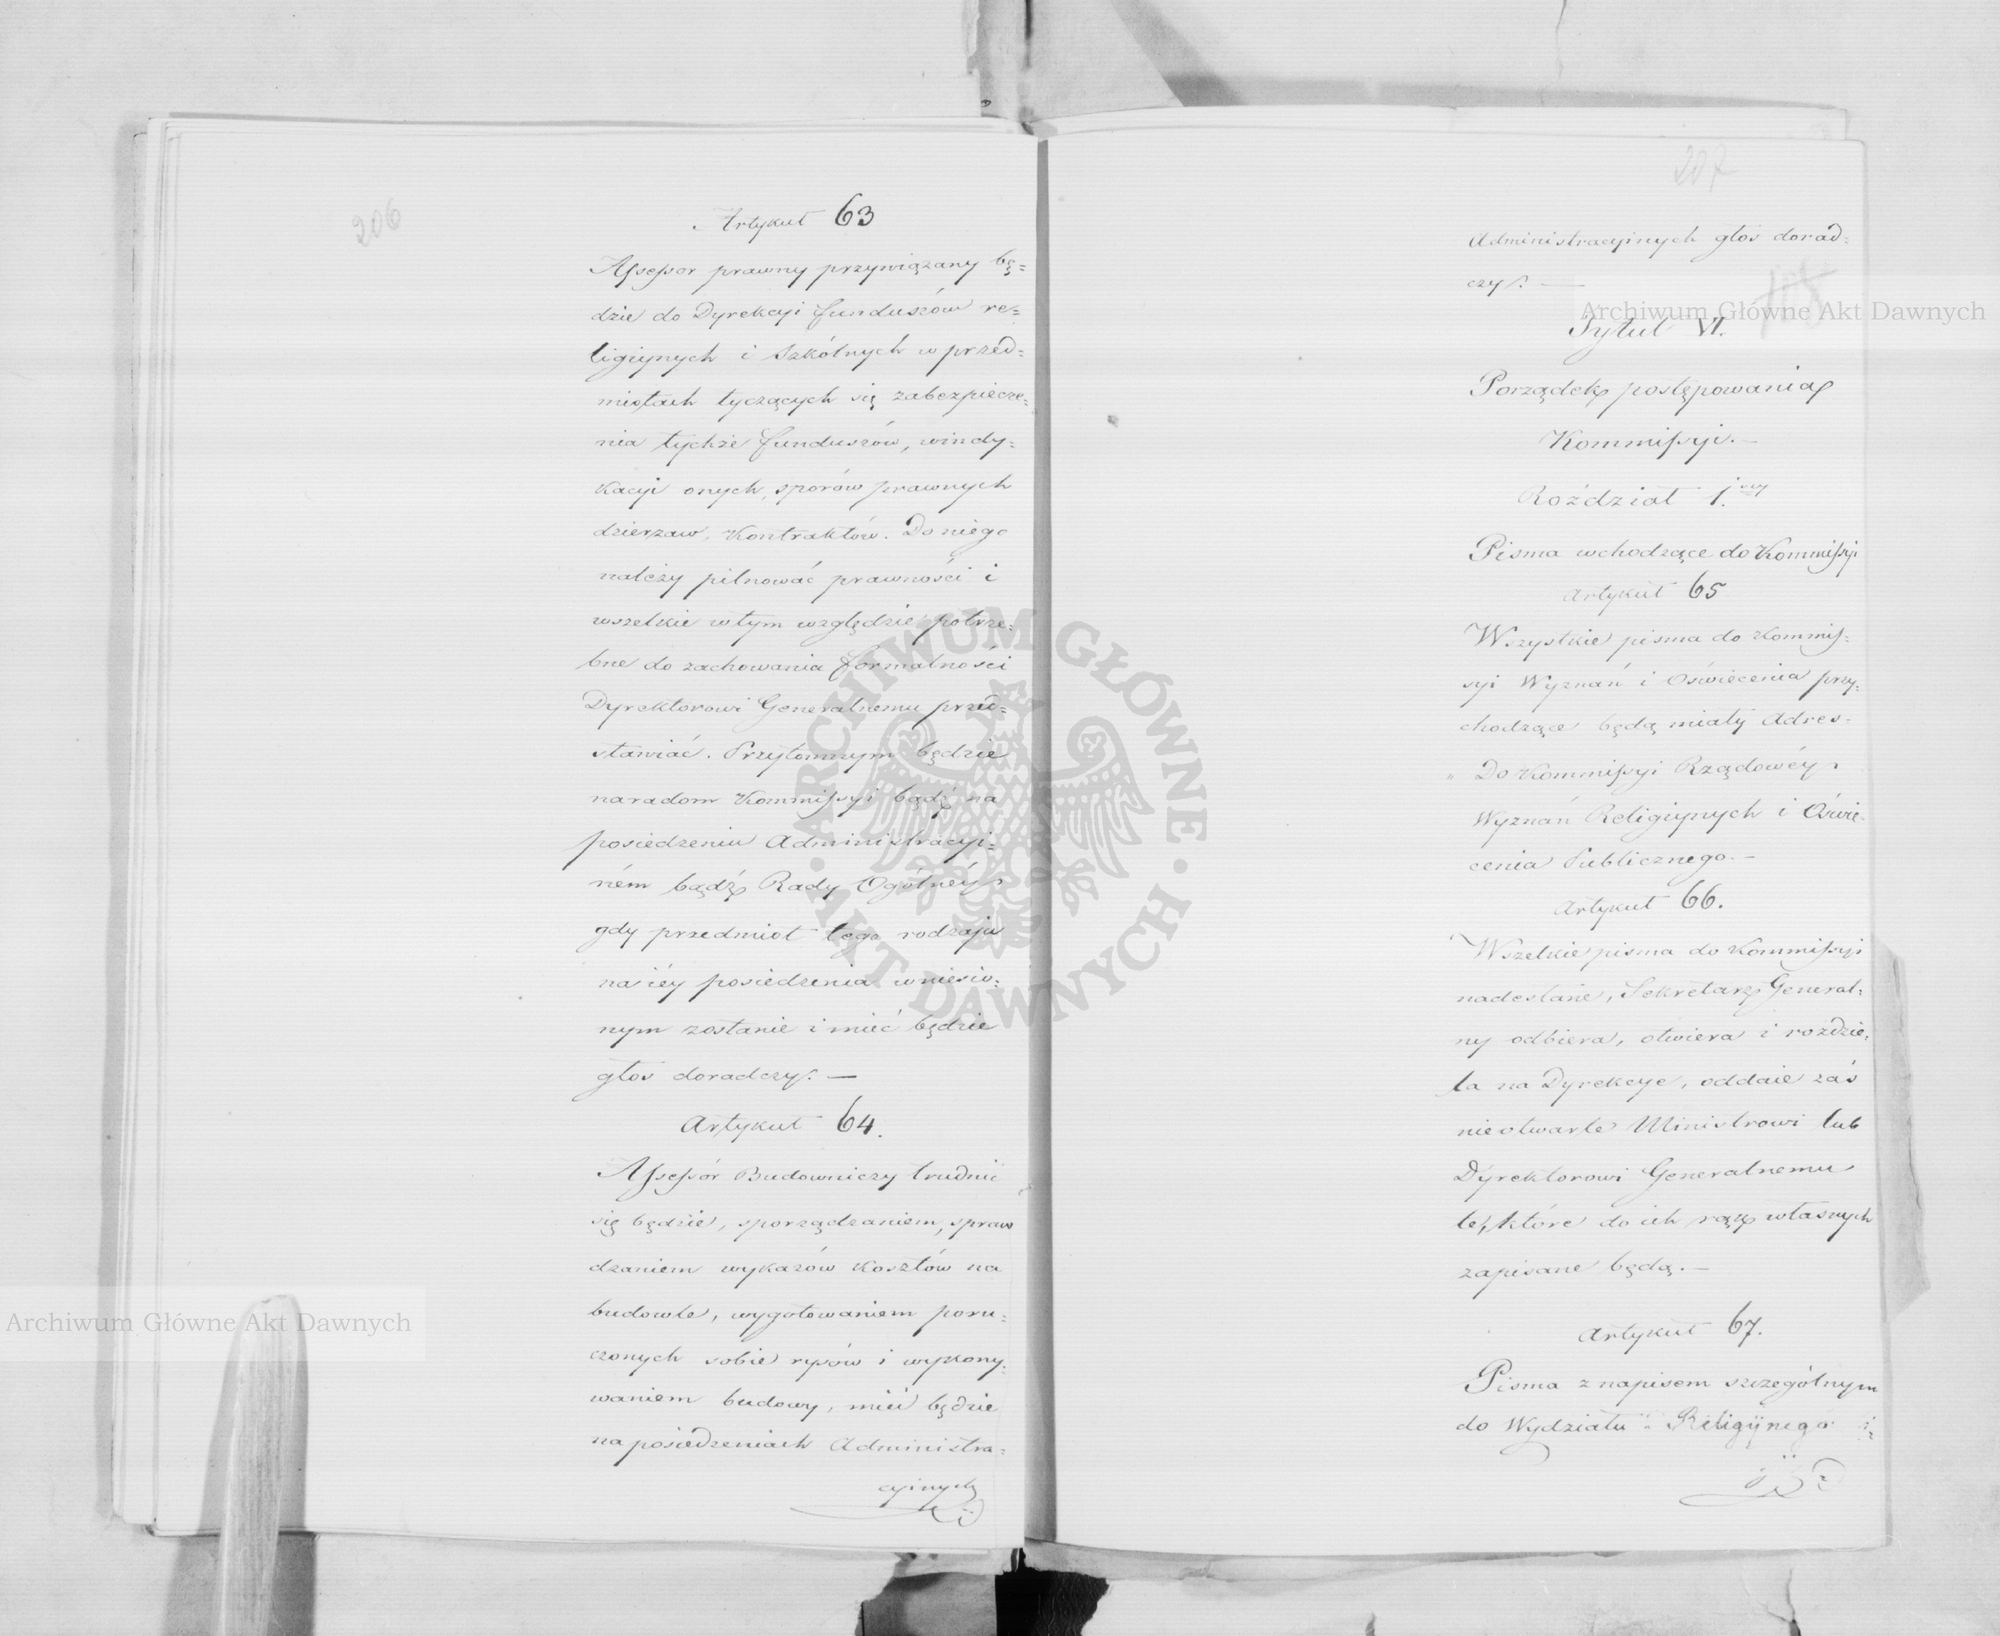 206
Artykuł 63
Assessor prawny przywiązany bę=
dzie do Dyrekcyi funduszów re=
ligiynych i Szkólnych w przed=
miotach tyczących się zabezpiecze=
nia tychże funduszów, windy=
kacyi onych, sporów prawnych
dzierzaw, Kontraktów. Do niego
należy pilnować prawności i
wszelkie w tym względzie potrze=
bne do zachowania formalności
Dyrektorowi Generalnemu przed=
stawiać. Przytomnym będzie
naradom Kommissyi bądź na
posiedzeniu Administracyi=
ném bądź Rady Ogólnéy
gdy przedmiot tego rodzaju
na iéy posiedzenia wniesio=
nym zostanie i mieć będzie
głos doradczy. —
Artykuł 64.
Assessór Budowniczy trudnić
się będzie, sporządzaniem, spraw
dzaniem wykazów kosztów na
budowle, wygotowaniem poru=
czonych sobie rysów i wykony=
waniem budowy, mieć będzie
na posiedzeniach Administra=
cyinych
207
Administracyinych głos dorad=
czy. —
105
Tytuł VI.
Porządek postępowania
Kommissyi. —
Roździał 1.szy
Pisma wchodzące do Kommissyi
Artykuł 65
Wszystkie pisma do Kommis=
syi Wyznań i Oświecenia przy=
chodzące będą miały Adres=
„ Do Kommissyi Rządowéy
Wyznań Religiynych i Oświe=
cenia Publicznego. —
Artykuł 66.
Wszelkie pisma do Kommissyi
nadesłane, Sekretarz General=
ny odbiera, otwiera i roździe=
la na Dyrekcye, oddaie zaś
nieotwarte Ministrowi lub
Dyrektorowi Generalnemu
te, które do ich rąk własnych
zapisane będą. —
Artykuł 67.
Pisma z napisem szczególnym
do Wydziału Religiynego
Archiwum Główne Akt Dawnych
Archiwum Główne Akt Dawnych
ARCHIWUM GŁÓWNE
AKT DAWNYCH